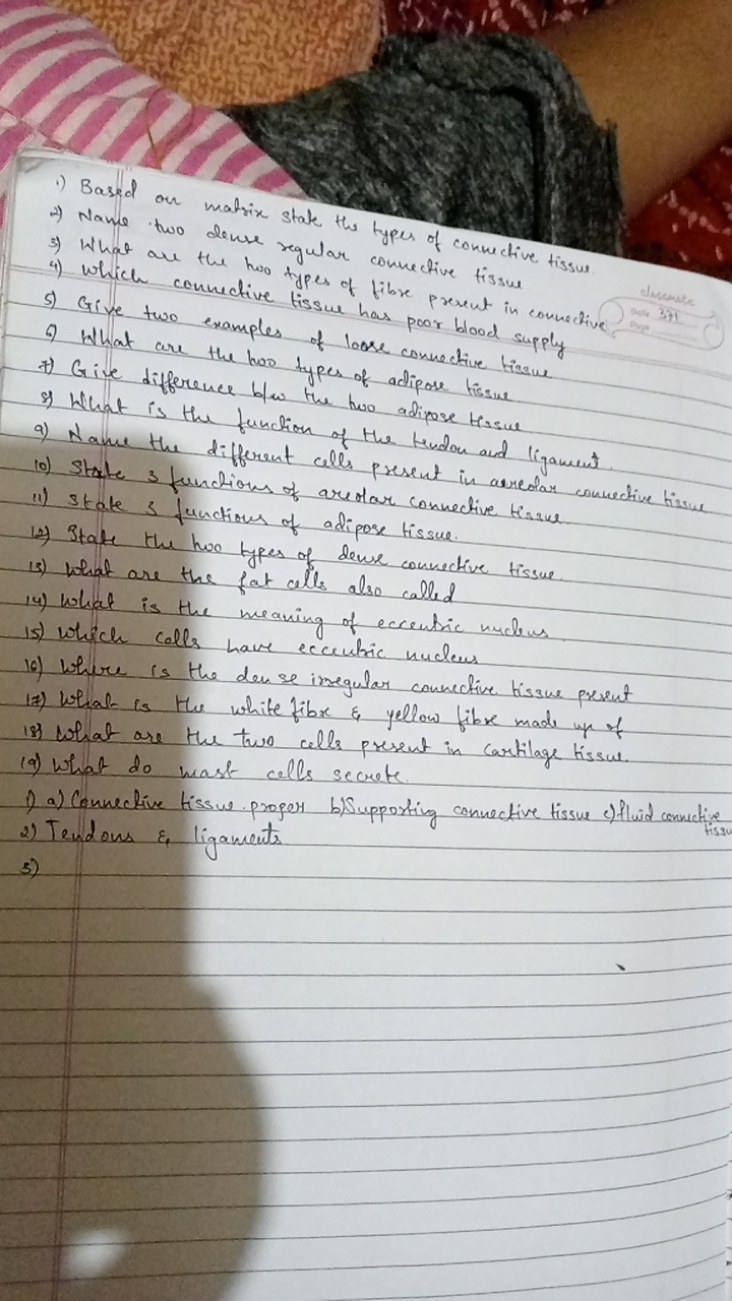 1) Based on matrix state the types of connective tissue.
2) Name two dense regular connective tissue
3) What are the two types of fibre present in connective
4) which connective tissue has poor blood supply
classmate
Date 371
Page
5) Give two examples of loose connective tissue
6) What are the two types of adipose tissue
7) Give difference b/w the two adipose tissue
8) What is the function of the tendon and ligament.
9) Name the different cells present in aereolar connective tissue
10) State 3 functions of areolar connective tissue.
11) State 3 functions of adipose tissue.
12) State the two types of dense connective tissue.
13) What are the fat cells also called
14) What is the meaning of eccentric nucleus.
15) Which cells have eccentric nucleus
16) Where is the dense irregular connective tissue present
17) What is the white fibre & yellow fibre made up of
18) What are the two cells present in Cartilage tissue.
19) What do mast cells secrete.
1) a) Connective tissue proper b) Supporting connective tissue c) fluid connective tissu
2) Tendons & ligaments
3)